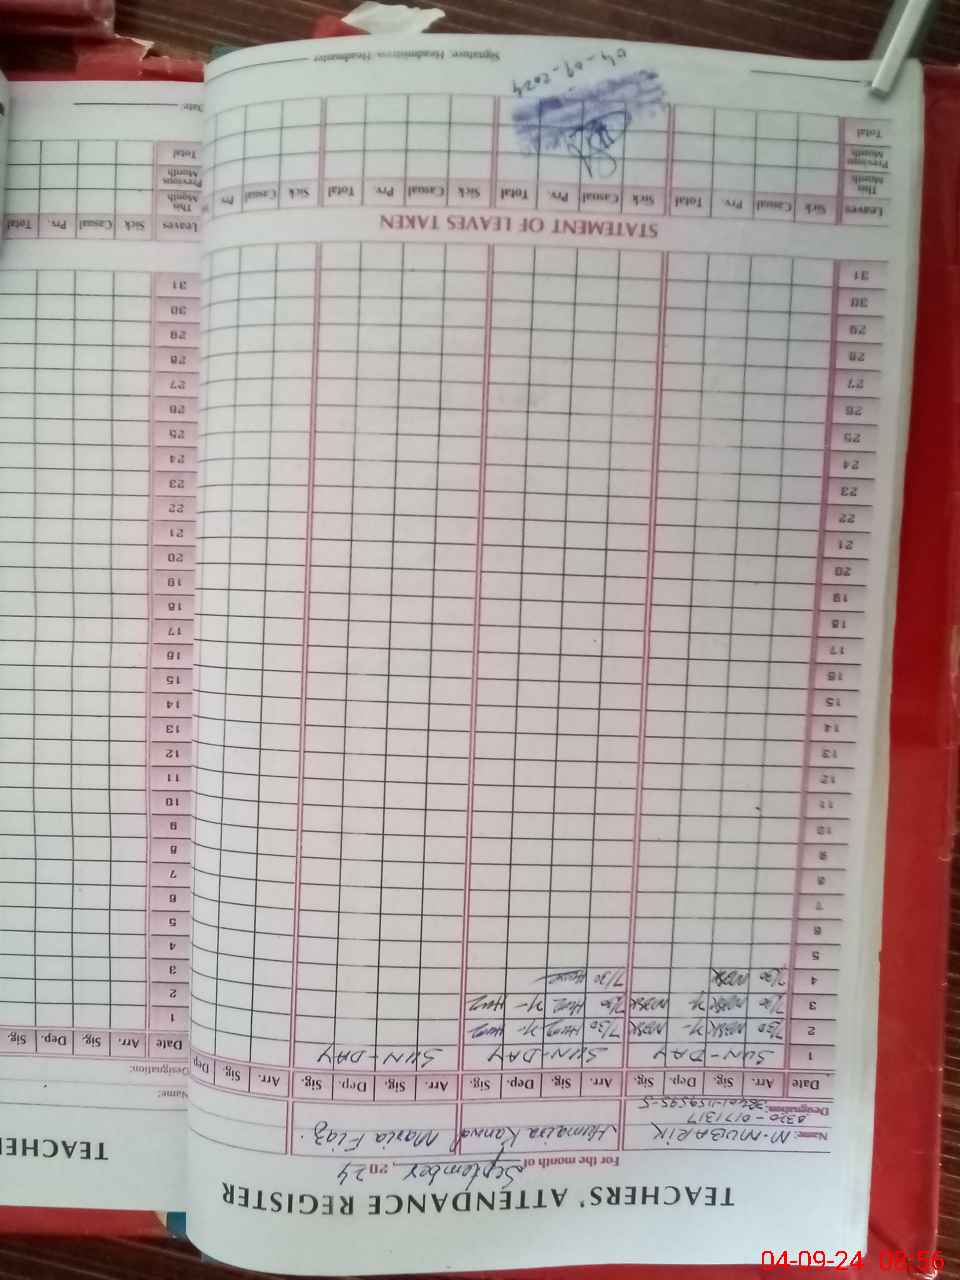 TEACHERS' ATTENDANCE REGISTER
For the month of September, 2024
Name: M-MUBARIK Humaira Kanwal Maria Fiaz
0320-0171317
Designation: 38401-1159595-5
Date Arr. Sig. Dep. Sig. Arr. Sig. Dep. Sig. Arr. Sig. Dep. Sig. Arr. Sig. Dep.
1 SUN-DAY SUN-DAY SUN-DAY
2 7/30 7/30
3 7/30 7/30
4 7/30 7/30
5
6
7
8
9
10
11
12
13
14
15
16
17
18
19
20
21
22
23
24
25
26
27
28
29
30
31
STATEMENT OF LEAVES TAKEN
Leaves Sick Casual Prv. Total Sick Casual Prv. Total Sick Casual Prv. Total Sick Casual Prv.
This Month
Previous Month
Total
04-09-2024
Signature, Headmistress, Headmaster
TEACHE
Name:
Designation:
Date Arr. Sig. Dep. Sig.
1
2
3
4
5
6
7
8
9
10
11
12
13
14
15
16
17
18
19
20
21
22
23
24
25
26
27
28
29
30
31
Leaves Sick Casual Prv. Total
This Month
Previous Month
Total
Date
04-09-24 08:56